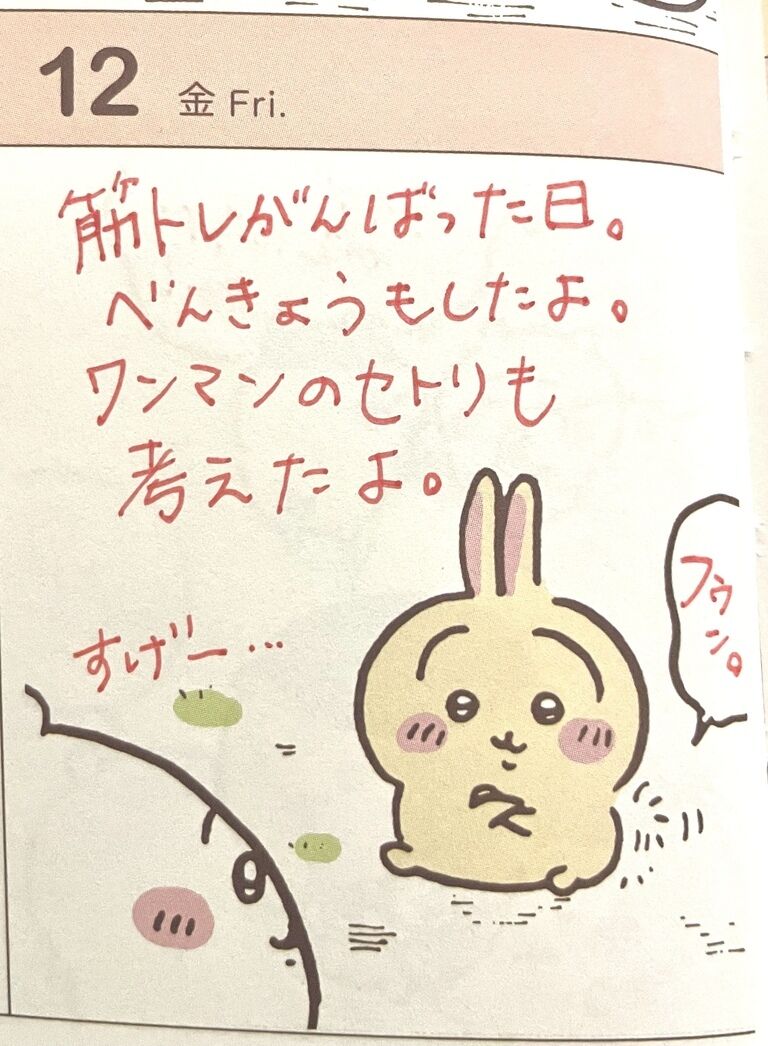 12 金 Fri.
筋トレがんばった日。
べんきょうもしたよ。
ワンマンのセトリも
考えたよ。
フゥン。
すげー…